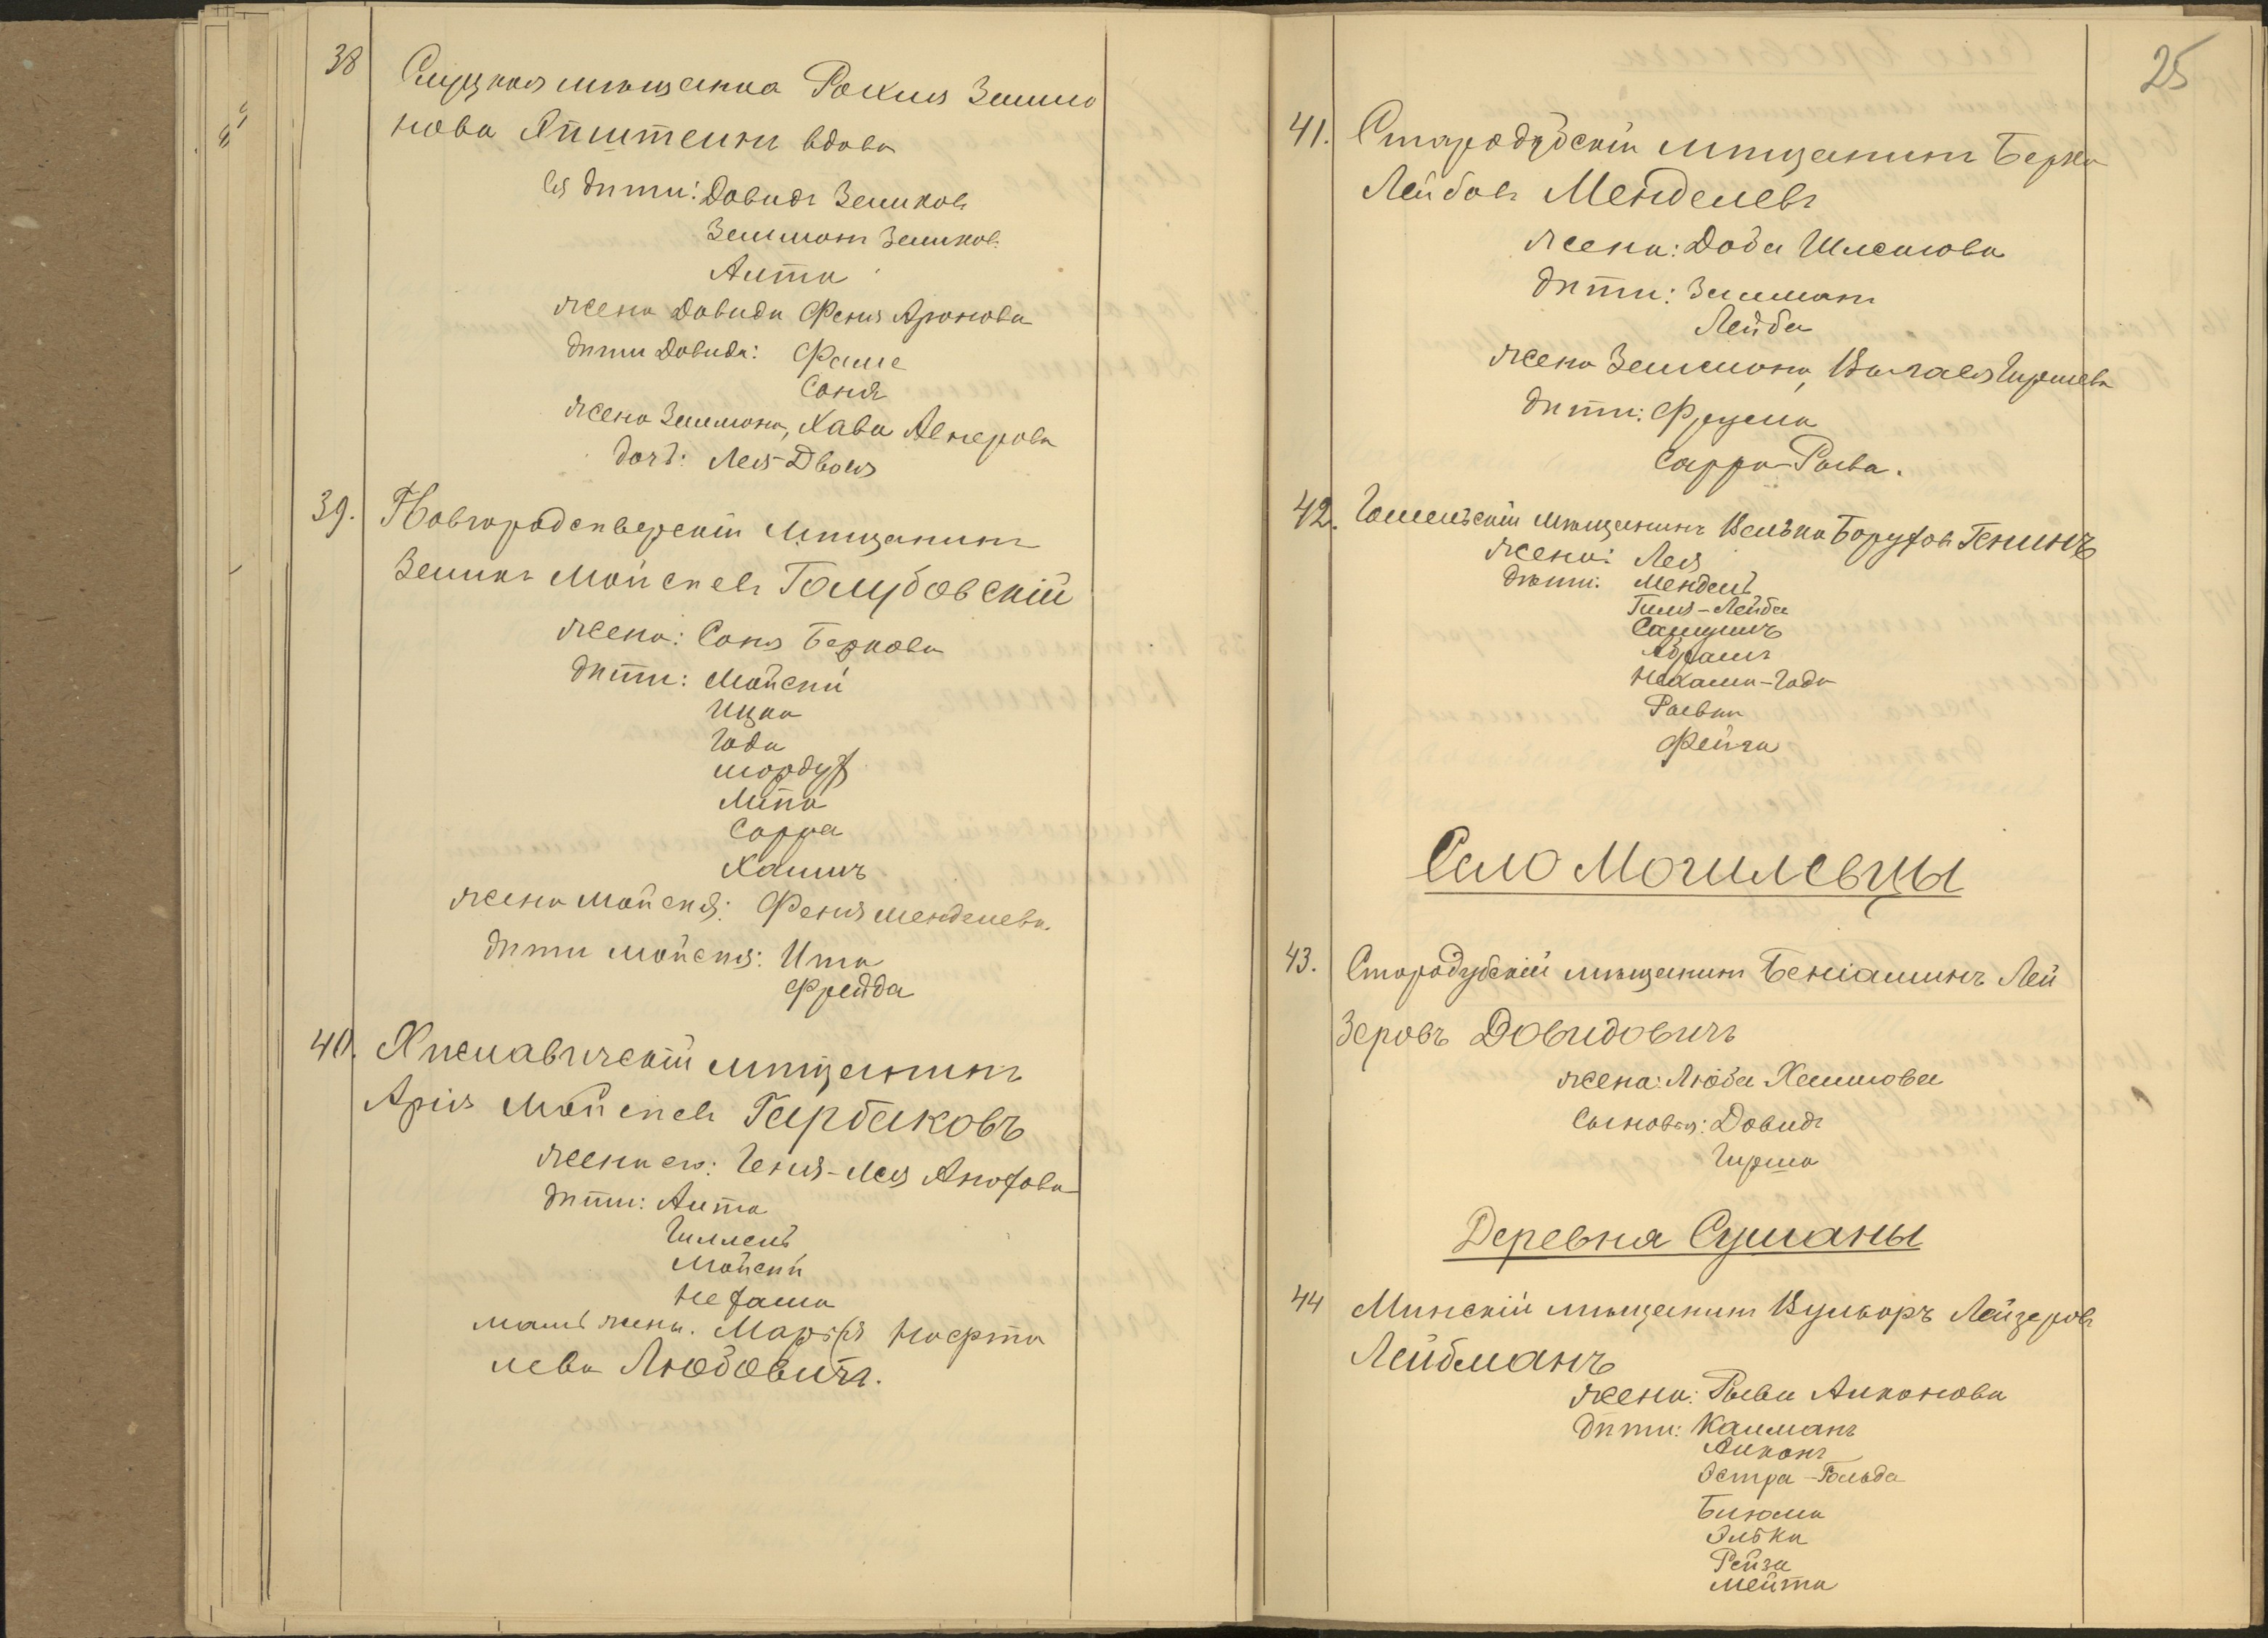 38
Слуцкая мѣщанка Рохля Залмо
нова Эпштейнъ вдова
ея дѣти: Довидъ Зеликовъ
Залмонъ Зеликовъ
Алта
жена Довида Феня Аронова
дѣти Довида: Фаше
Соня
жена Залмона, Хава Лейзерова
дочь: Лея-Двося
39. Новгородсѣверскій мѣщанинъ
Зеликъ Мойсѣевъ Голубовскій
жена: Соня Беркова
дѣти: Мойсѣй
Ицка
Года
Мордух
Липа
Сорра
Хаимъ
жена Мойсѣя: Феня Менделева.
дѣти Мойсѣя: Ита
Фрейда
40. Хиславичскій мѣщанинъ
Арія Мойсѣевъ Гарбаковъ
жена его: Геня-Лея Анохова
дѣти: Алта
Гиллель
Мойсѣй
Нехама
мать жены. Марья Нафта
лева Любовичъ.
25
41. Стародубскій мѣщанинъ Берка
Лейбовъ Менделевъ
жена: Доба Шлемова
дѣти: Залманъ
Лейба
жена Залмана, Выхася Гиршева
дѣти: Фрума
Сарра-Рыва.
42. Гомельскій мѣщанинъ Велька Боруховъ Генинъ
жена: Лея
дѣти: Мендель
Гиля-Лейба
Самуилъ
Абрамъ
Нехама-Года
Рывка
Фейга
Село Могилевцы
43. Стородубскій мѣщанинъ Беніаминъ Лей
зеровъ Довидовичъ
жена: Люба Хаимова
Сыновья: Довидъ
Гирша
Деревня Сушаны
44 Минскій мѣщанинъ Вульфръ Лейзеровъ
Лейбманъ
жена: Рыва Анконова
дѣти: Калманъ
Анконъ
Эстра-Гольда
Блюма
Элька
Рейза
Мейта